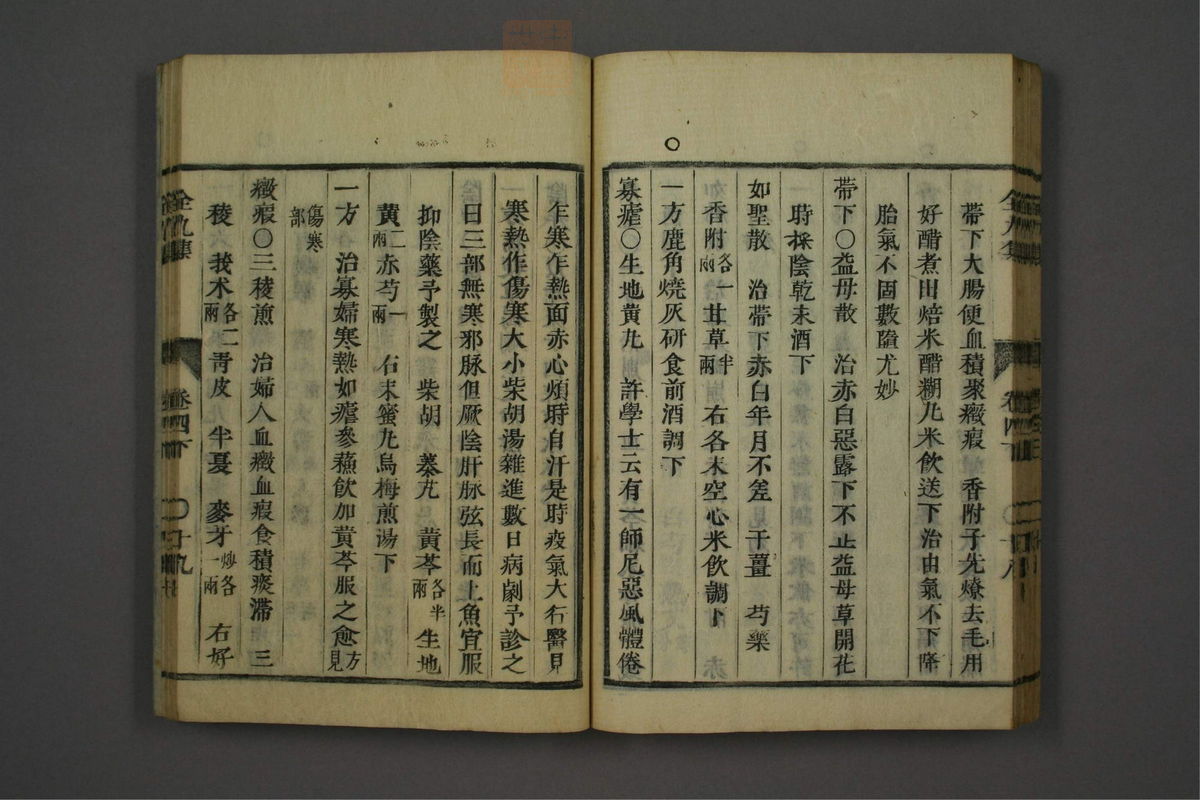 帶下大腸便血積聚癥瘕　香附子先燎去毛用
好醋煮田焙米醋糊丸米飲送下治由氣不下降
胎氣不固數墮尤妙
帶下〇益母散　治赤白惡露下不止益母草開花
時採陰乾末酒下
如聖散　治帶下赤白年月不差　干薑　芍藥
香附各一兩甘草半兩　右各末空心米飲調下
一方鹿角燒灰研食前酒調下
寡瘧〇生地黄丸　許學士云有一師尼惡風體倦
乍寒乍熱面赤心煩時自汗是時疫氣大行醫見
寒熱作傷寒大小柴胡湯雜進數日病劇予診之
曰三部無寒邪脉但厥陰肝脉弦長而上魚宜服
抑陰藥予製之　柴胡　蓁艽　黄芩各半兩　生地
黄二兩赤芍一兩　右末蜜丸烏梅煎湯下
一方　治寡婦寒熱如瘧參蘓飲加黄芩服之愈方見
傷寒部
癥瘕〇三稜煎　治婦人血癥血瘕食積痰滯　三
稜　莪术各二兩青皮　半夏　麥牙炒各一兩　右好
卷四下
十九